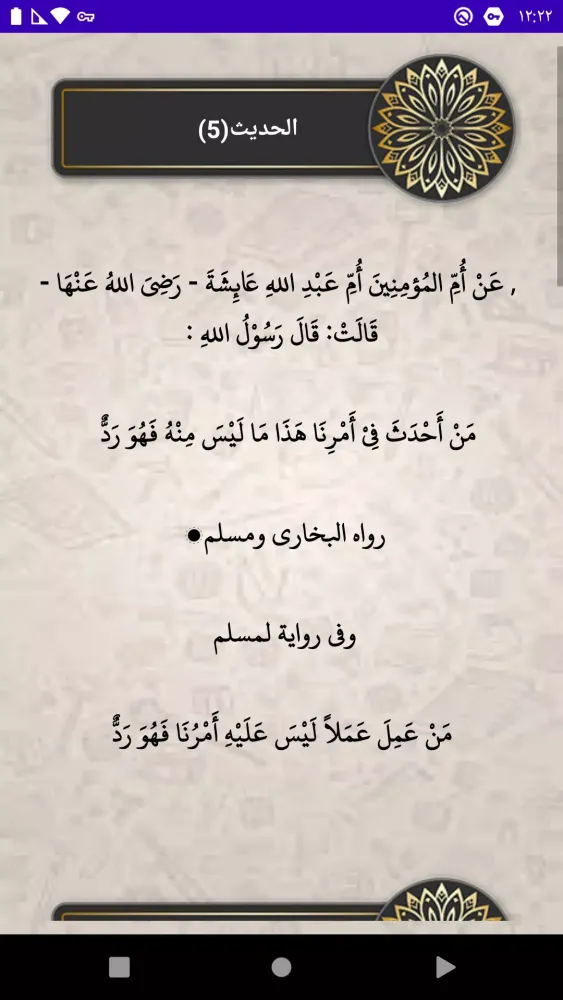 ١٢:٢٢
الحديث(5)
, عَنْ أُمِّ المُؤمِنِينَ أُمِّ عَبْدِ اللهِ عَايِشَةَ - رَضِىَ اللهُ عَنْهَا -
قَالَتْ: قَالَ رَسُوْلُ اللهِ :
مَنْ أَحْدَثَ فِىْ أَمْرِنَا هَذَا مَا لَيْسَ مِنْهُ فَهُوَ رَدٌّ
رواه البخارى ومسلم●
وفى رواية لمسلم
مَنْ عَمِلَ عَمَلاً لَيْسَ عَلَيْهِ أَمْرُنَا فَهُوَ رَدٌّ